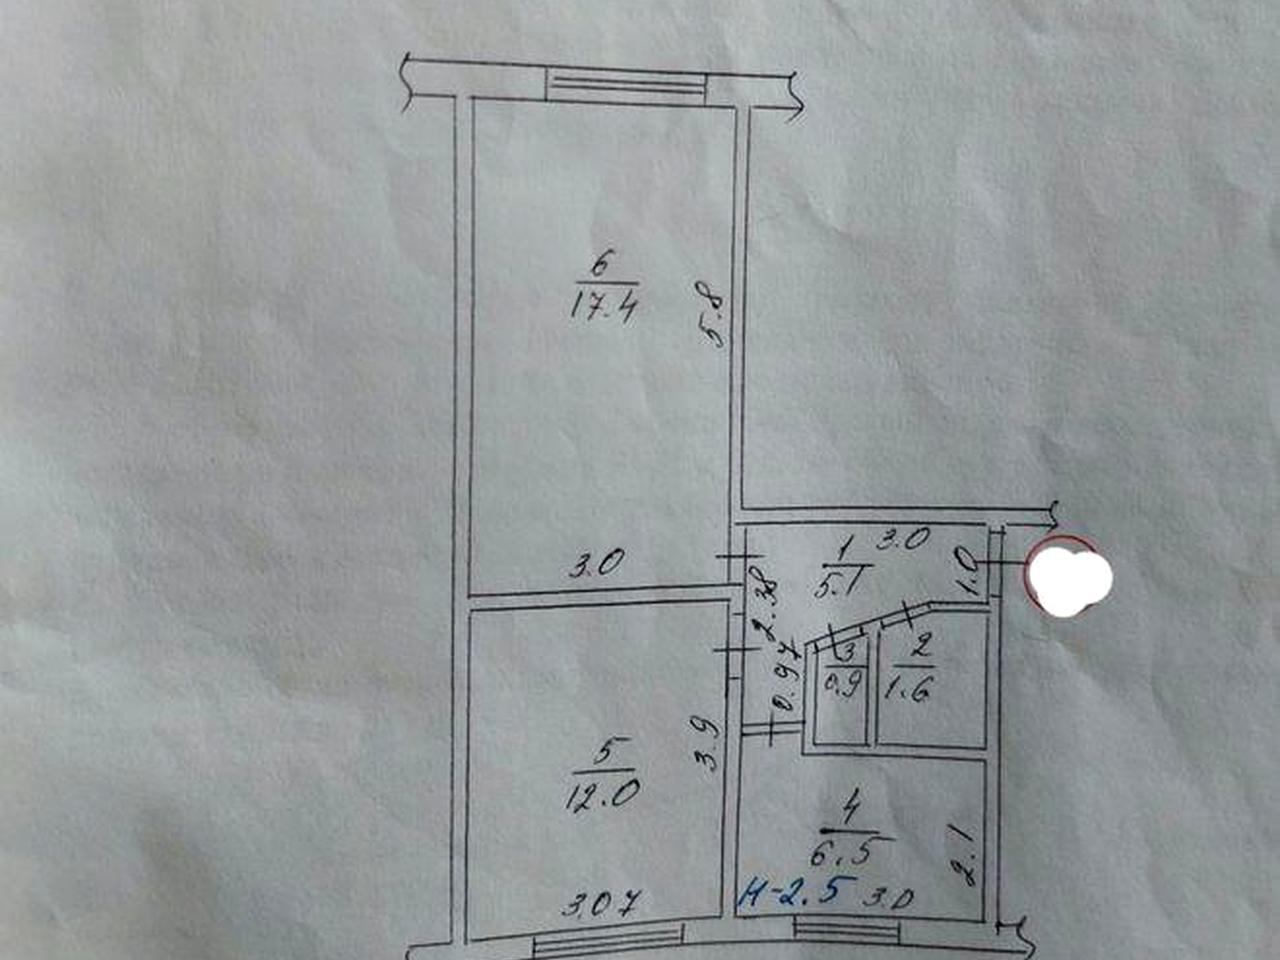 6
17.4
5.8
3.0
1
5.1
3.0
1.0
2.38
0.97
3
0.9
2
1.6
5
12.0
3.9
3.07
4
6.5
2.1
H-2.5
3.0